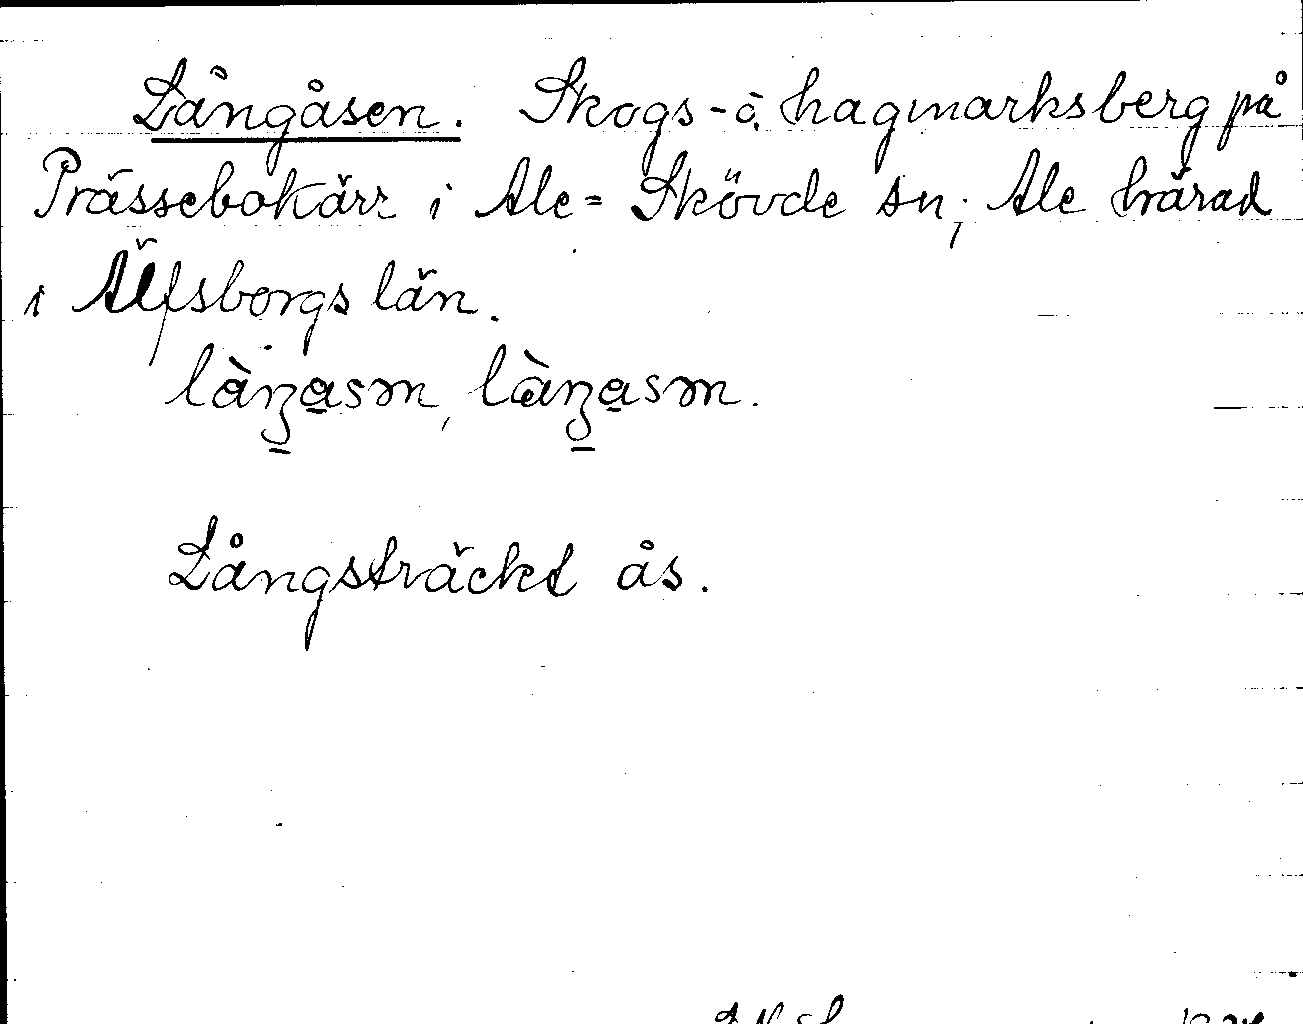 Långåsen. Skogs- o. hagmarksberg på
Prässebokärr i Ale-Skövde sn; Ale härad
i Älfsborgs län.
làŋasm, làŋasm.
Långsträckt ås.